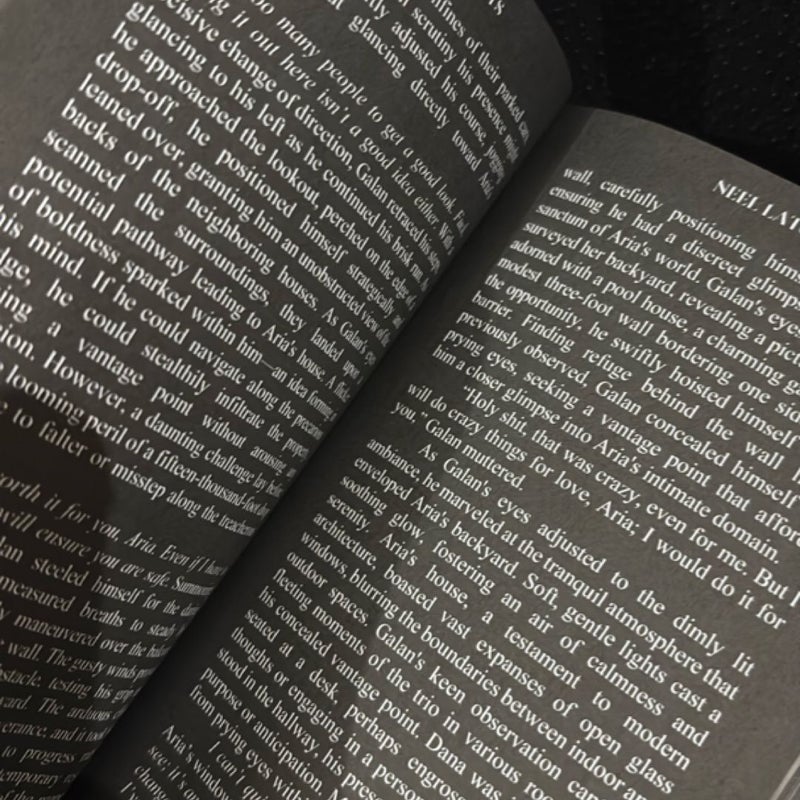 s
nfines of their parked car
scrutiny his presence might
tly adjusted his course, jogging
glancing directly toward Aria
oo many people to get a good look.
g it out here isn't a good idea either. With
ecisive change of direction, Galan retraced his
glancing to his left as he continued his brisk run.
he approached the lookout, perched on the edge of
drop-off, he positioned himself strategically
leaned over, granting him an unobstructed view of the
backs of the neighboring houses. As Galan's eyes
scanned the surroundings, they landed upon
potential pathway leading to Aria's house. A
of boldness sparked within him—an idea forming
his mind. If he could navigate along the
dge, he could stealthily infiltrate the
ing a vantage point without arousing
sion. However, a daunting challenge lay
e looming peril of a fifteen-thousand-foot
e to falter or misstep along the treacherous
orth it for you, Aria. Even if I
will ensure you are safe.
an steeled himself for the
measured breaths to steady
ly maneuvered over the
wall. The gusty winds
stacle, testing his grip
ward. The arduous
verance, and it took
to progress
temporary
of the
NEEL LAT
wall, carefully positioning hims
ensuring he had a discreet glimps
sanctum of Aria's world. Galan's eyes
surveyed her backyard, revealing a pict
adorned with a pool house, a charming ga
modest three-foot wall bordering one sid
the opportunity, he swiftly hoisted himself
barrier. Finding refuge behind the wall
previously observed, Galan concealed himself
prying eyes, seeking a vantage point that affor
him a closer glimpse into Aria's intimate domain.
"Holy shit, that was crazy, even for me. But I
will do crazy things for love, Aria; I would do it for
you," Galan muttered.
As Galan's eyes adjusted to the dimly lit
ambiance, he marveled at the tranquil atmosphere that
enveloped Aria's backyard. Soft, gentle lights cast a
soothing glow, fostering an air of calmness and
serenity. Aria's house, a testament to modern
architecture, boasted vast expanses of open glass
windows, blurring the boundaries between indoor an
outdoor spaces. Galan's keen observation
fleeting moments of the trio in various roo
his concealed vantage point. Dana was
seated at a desk, perhaps engross
thoughts or engaging in a person
stood in the hallway, his prese
purpose or anticipation. M
from prying eyes with
Aria's window
I can't qui
see, it's
chang
I've